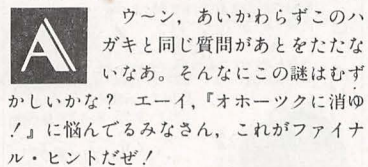 A
ウ〜ン,あいかわらずこのハ
ガキと同じ質問があとをたたな
いなあ。そんなにこの謎はむず
かしいかな? エーイ,『オホーツクに消ゆ
!』に悩んでるみなさん,これがファイナ
ル・ヒントだぜ!